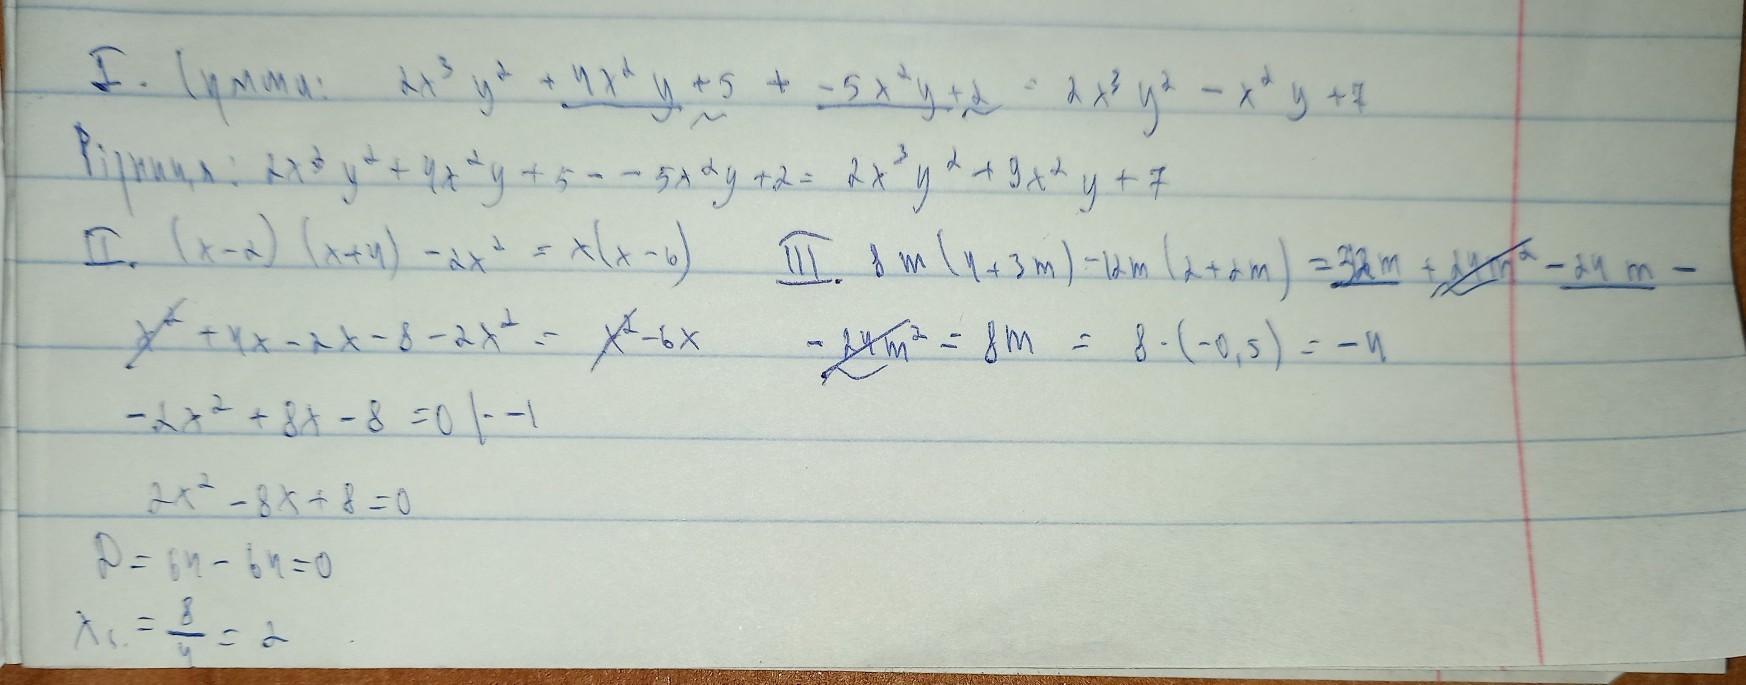 I. Сумма: 2x³y² + 4x²y + 5 + -5x²y + 2 = 2x³y² - x²y + 7
Різниця: 2x³y² + 4x²y + 5 - - 5x²y + 2 = 2x³y² + 9x²y + 7
II. (x-2)(x+4) - 2x² = x(x-6)
x² + 4x - 2x - 8 - 2x² = x² - 6x
-2x² + 8x - 8 = 0 |· -1
2x² - 8x + 8 = 0
D = 64 - 64 = 0
x₁. = 8/4 = 2
III. 8m(4+3m) - 12m(2+2m) = 32m + 24m² - 24m -
- 24m² = 8m = 8·(-0,5) = -4